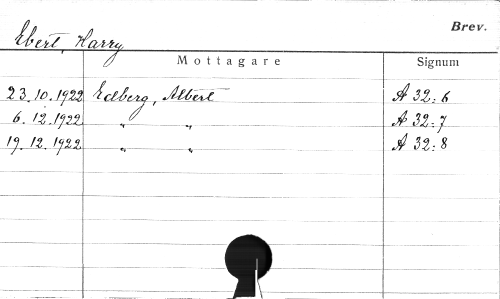 Brev.
Ebert, Harry
Mottagare Signum
23.10.1922 Edberg, Albert A 32:6
6.12.1922 " " A 32:7
19.12.1922 " " A 32:8